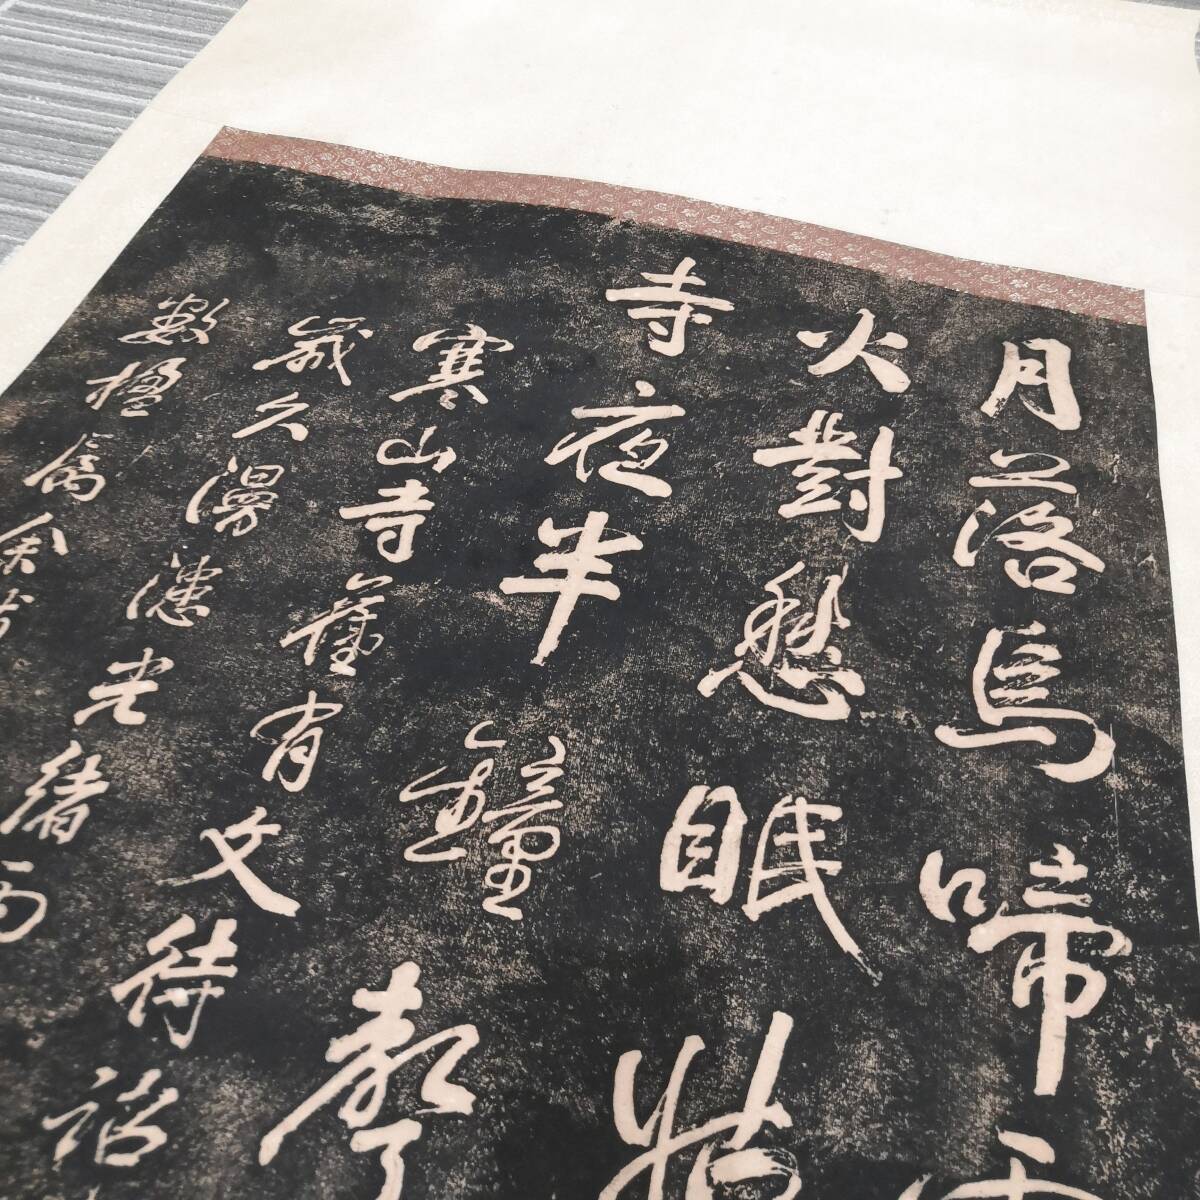 月落烏啼
火對愁眠姑
寺夜半鐘聲
寒山寺舊有文待詔
歲久漫漶光緒丙
數楹屬余